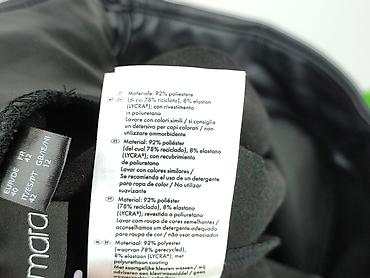 Materiale: 92% poliestere
(di cui 78% riciclato), 8% elastan
(LYCRA®); con rivestimento
in poliuretano
Lavare con colori simili / si consiglia
un detersivo per capi colorati / non
utilizzare ammorbidente
Material: 92% poliéster
(del cual 78% reciclado), 8% elastano
(LYCRA®); con recubrimiento
de poliuretano
Lavar con colores similares /
Se recomienda el uso de un detergente
para ropa de color / No utilizar
suavizante
Material: 92% poliéster
(78% reciclado), 8% elastano
(LYCRA®); revestida a poliuretano
Lavar com roupa de cores semelhantes /
aconselhamos um detergente adequado
para roupa de cor / não usar amaciador
Materiaal: 92% polyester
(waarvan 78% gerecycled),
8% elastan (LYCRA®); met
polyurethaan coating
Met soortgelijke kleuren wassen / wij
EUR/DE 40
FR 42
IT/ES/PT 42
GB/IE/NI 12
mara